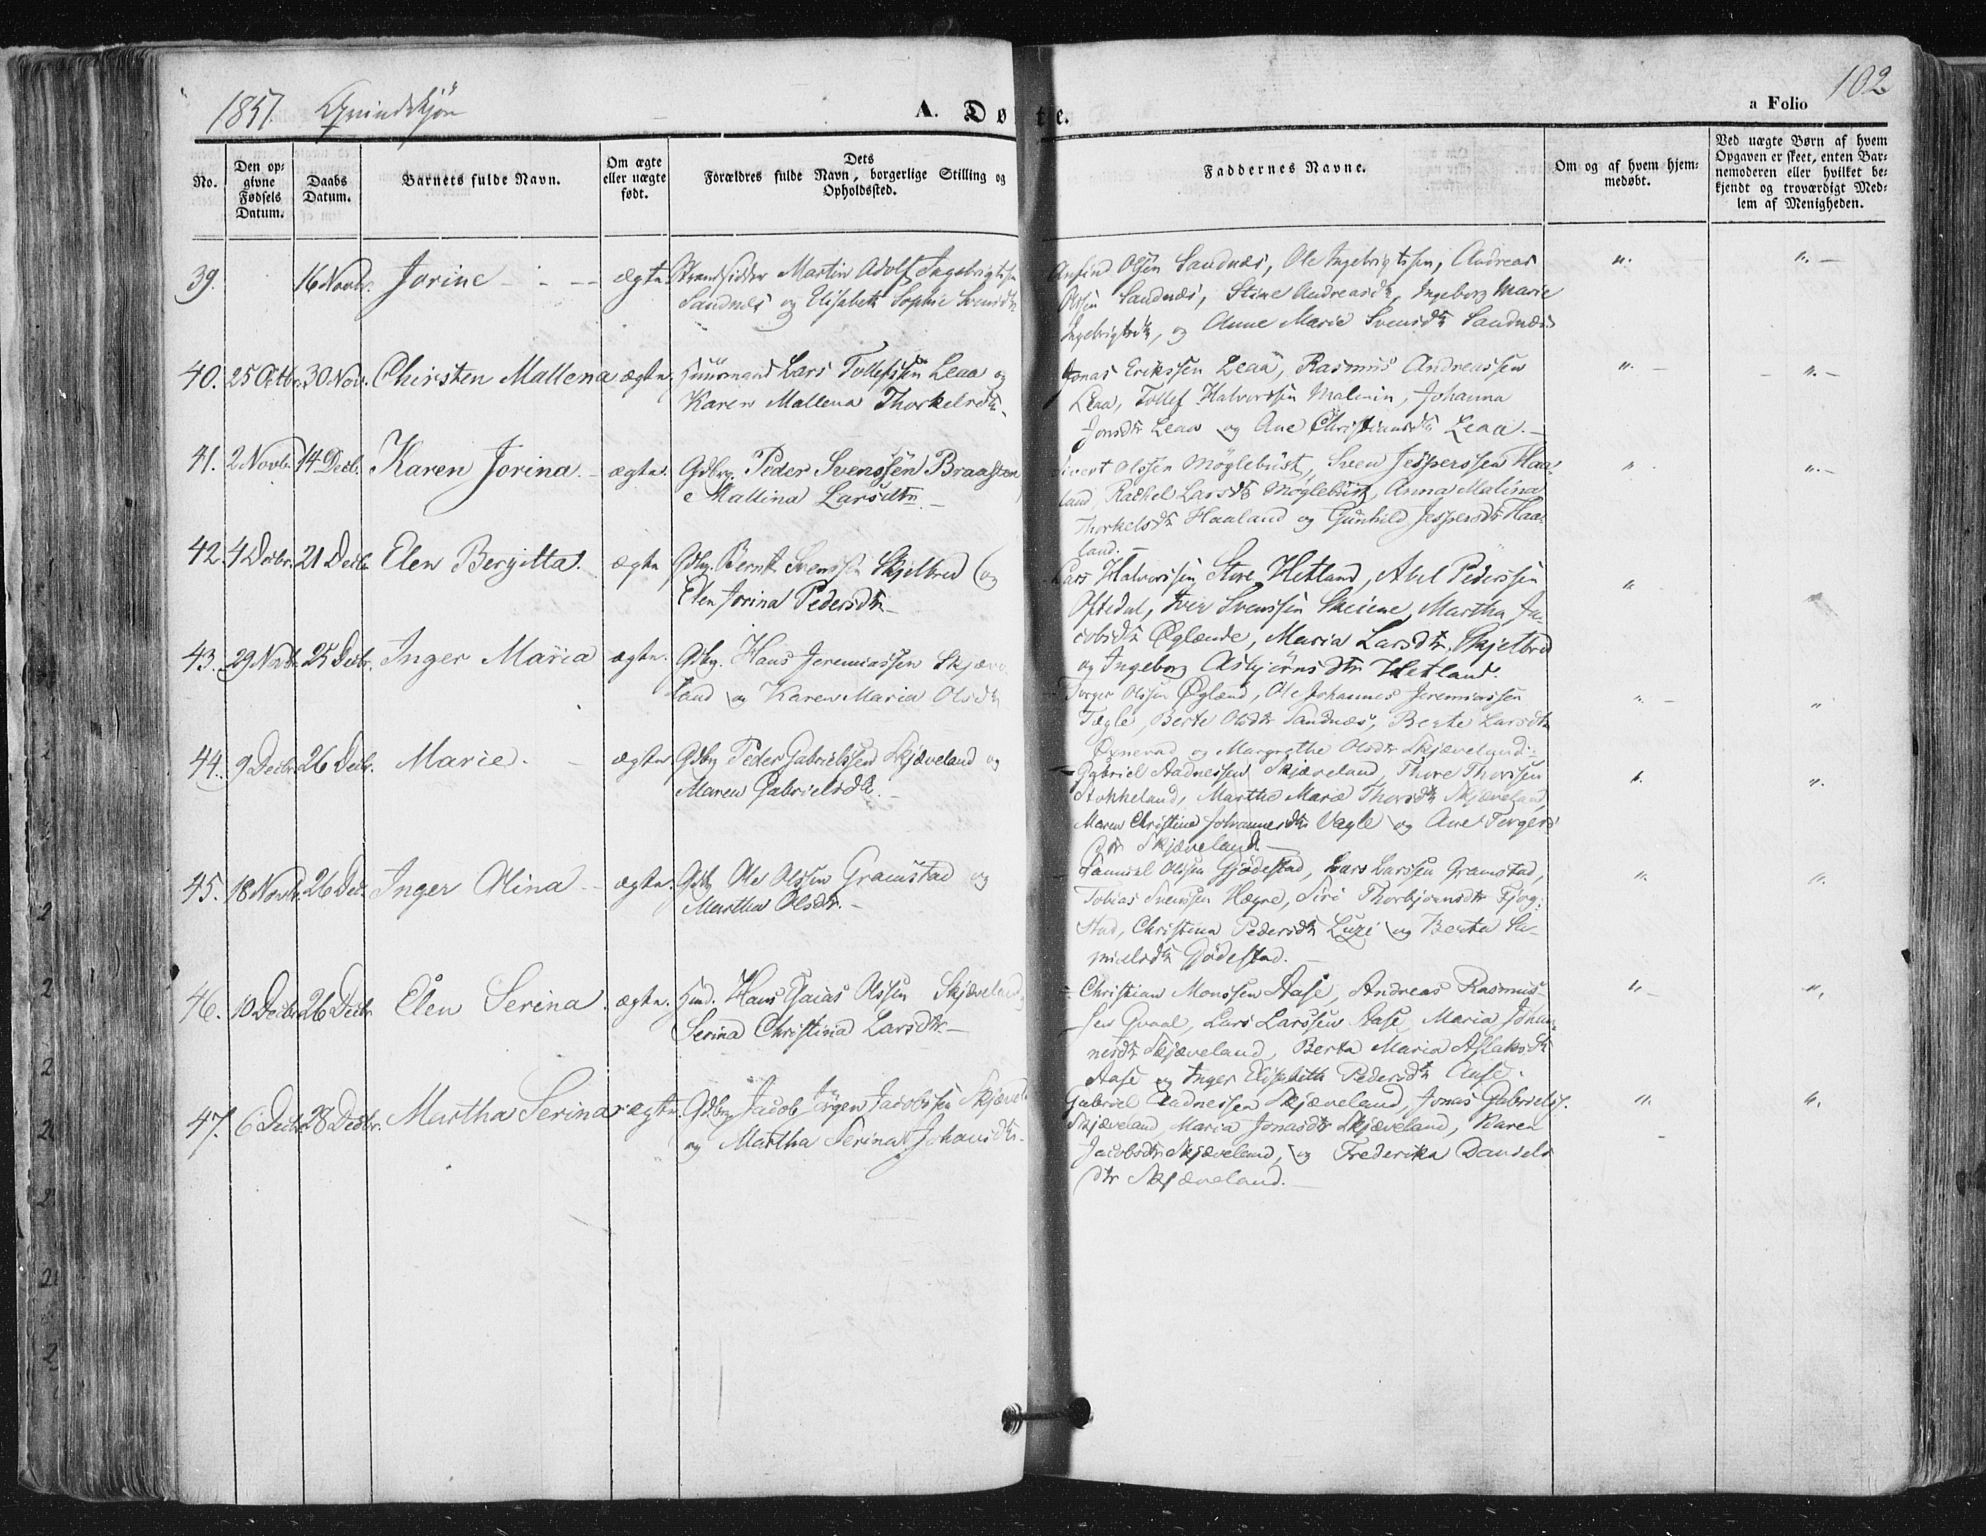 1851. Qvindekjøn
A. Døbte.
a Folio 102
No.
Den opgivne Fødsels Datum.
Daabs Datum.
Barnets fulde Navn.
Om ægte eller uægte født.
Dets Forældres fulde Navn, borgerlige Stilling og Opholdssted.
Faddernes Navne.
Om og af hvem hjemmedøbt.
Ved uægte Børn af hvem Opgaven er skeet, enten Barnemoderen eller hvilket bekjendt og troværdigt Medlem af Menigheden.
39. 16 Novbr. Jorine ægte Strandsidder Martin Adolf Ingebrigtsen
Sandnæs og Elisabeth Sophie Svensdtr
Anfind Olsen Sandnæs, Ole Ingebrigtsen, Andreas
Olsen Sandnæs, Stine Andreasdtr, Ingeborg Marie
Ingebrigtsdtr, og Anne Marie Svensdtr Sandnæs
40. 25 Octbr. 30 Nov. Chirsten Mallena ægte. Huusmand Lars Tollefssen Leaa og
Karen Mallena Thorkelsdtr.
Jonas Erikssen Leaa, Rasmus Andreassen
Leaa, Tollef Halvorssen Malmin, Johanna
Jonsdtr Leaa og Ane Christiansdtr Leaa.
41. 2 Novbr. 14 Decb. Karen Jorina. ægte. Gdbrg. Peder Svenssen Braasten
Mallina Larsdtr.
Sivert Olssen Møglebust, Sven Jesperssen Haa-
land, Rachel Larsdtr Møglebust, Anna Malina
Thorkelsdtr Haaland og Gunhild Jespersdtr Haa-
land.
42. 4 Decbr. 21 Decb. Elen Bergitta. ægte Gdbg. Bernt Svenssen Skjelbred og
Elen Jorina Pedersdtr
Lars Halvorssen Store Hetland, Axel Pederssen
Oftedal, Iver Svenssen Skeiene, Martha Ja-
cobsdtr Øglænde, Maria Larsdtr Skjelbred
og Ingeborg Asbjørnsdtr Hetland.
43. 29 Novbr. 25 Decbr. Inger Maria ægte. Gdbg. Hans Jeremiassen Skjæve-
land og Karen Maria Olsdtr
Torger Olssen Øglænd, Ole Johannes Jeremiassen
Tægle, Berte Olsdtr Sandnæs, Berte Larsdtr
Oxnevad og Margrethe Olsdtr Skjæveland.
44. 9 Decbr. 26 Decbr. Marie. ægte Gdbg Peder Gabrielssen Skjæveland og
Maren Gabrielsdtr.
Gabriel Aadnessen Skjæveland, Thore Thorssen
Stokkeland, Marthe Marie Thorsdtr Skjæveland,
Maren Christine Johannesdtr Vagle og Ane Torgers
dtr Skjæveland.
45. 18 Novbr. 26 Dec. Inger Olina ægte. Gdbg Ole Olssen Gramstad og
Martha Olsdtr.
Samuel Olssen Gjødestad, Lars Larssen Gramstad,
Tobias Svenssen Høyre, Siri Thorbjørnsdtr Fjog-
stad, Christina Pedersdtr Luze og Berta Sa-
muelsdtr Gjødestad.
46. 10 Decbr. 26 Decbr. Elen Serina. ægte. Hmd. Hans Esaias Olssen Skjæveland
Serina Christina Larsdtr.
Christian Monssen Aase, Andreas Rasmus-
sen Qvaal, Lars Larssen Aase, Maria Johan-
nesdtr Skjæveland, Berta Maria Aslaksdtr
Aase og Inger Elisabeth Pedersdtr Aase.
47. 6 Decbr. 28 Decbr. Martha Serina ægte. Gdbrg Jacob Jørgen Jacobssen Skjævel
og Martha Serina Johansdtr.
Gabriel Aadnessen Skjæveland, Jonas Gabriels.
Skjæveland, Maria Jonasdtr Skjæveland, Karen
Jacobsdtr Skjæveland, og Frederika Daniels
dtr Skjæveland.